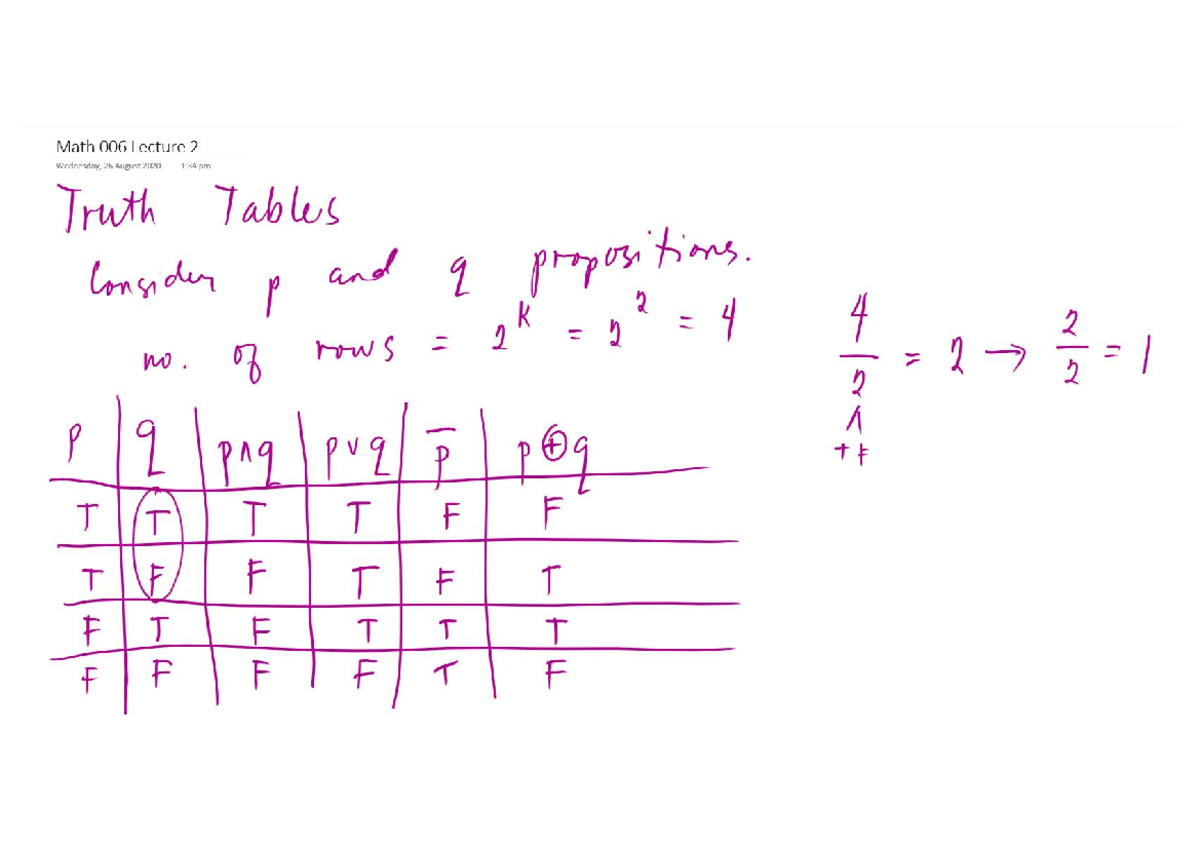 Math 006 Lecture 2
Wednesday, 26 August 2020 1:34 pm
Truth Tables
Consider p and q propositions.
no. of rows = 2^k = 2^2 = 4
4/2 = 2 → 2/2 = 1
∧
T F
p q p∧q p∨q p̅ p⊕q
T T T T F F
T F F T F T
F T F T T T
F F F F T F